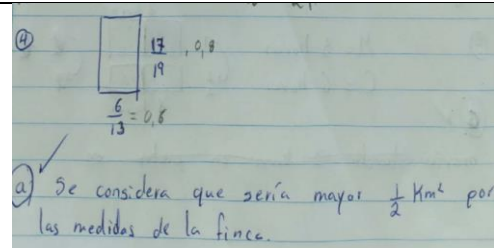 ④
17/19 , 0,8
6/13 = 0,6
a) Se considera que sería mayor 1/2 Km² por
las medidas de la finca.